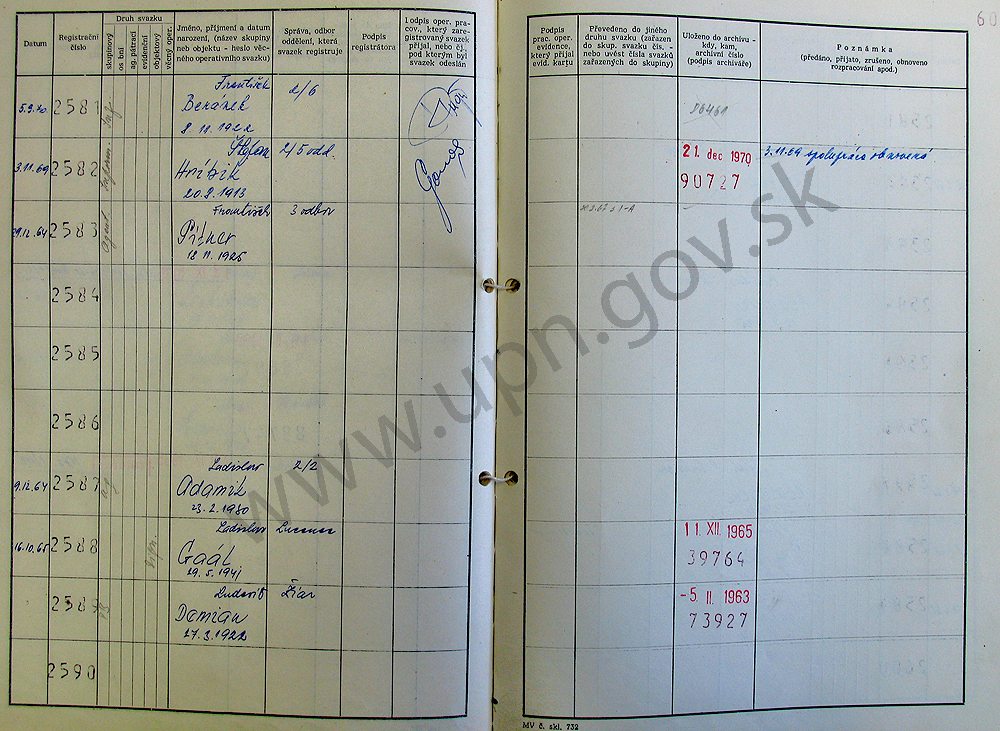 Datum
Registrační číslo
Druh svazku
skupinový
os bní
ag. pátrací
evidenční
objektový
věcný oper.
Jméno, příjmení a datum
narození, (název skupiny
neb objektu - heslo věc-
ného operativního svazku)
Správa, odbor
oddělení, která
svazek registruje
Podpis
registrátora
Podpis oper. pra-
cov., který zare-
gistrovaný svazek
přijal, nebo čj.
pod kterým byl
svazek odeslán
Podpis
prac. oper.
evidence,
který přijal
evid. kartu
Převedeno do jiného
druhu svazku (zařazen
do skup. svazku čís. -
nebo uvést čísla svazků
zařazených do skupiny)
Uloženo do archivu -
kdy, kam,
archivní číslo
(podpis archiváře)
Poznámka
(předáno, přijato, zrušeno, obnoveno
rozpracování apod.)
60
2581
František 2/6
Beránek
8. 11. 1922
3.11.69 2582
2/5 odd.
Hríbik
20.9.1913
21. dec 1970
90727
3.11.69 spolupráca
29.12.64 2583
František 3 odbor
Pitner
18. 11. 1925
2584
2585
2586
9.12.64 2587 ag
Ladislav 2/2
Adamík
23.2.1930
16.10.65 2588
Ladislav Lučenec
Gaál
29.5.1941
11. XII. 1965
39764
2589
Ľudovít Žiar
Demian
27.3.1922
-5. II. 1963
73927
2590
MV č. skl. 732
www.upn.gov.sk